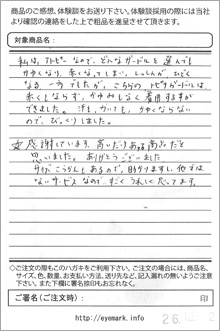 商品のご感想、体験談をお送り下さい。体験談採用の際には当社
より確認の連絡をした上で粗品を進呈させて頂きます。
対象商品名：
私は、アトピーなので、どんなガードルを選んでも
かゆくなり、赤くなってしまい、しっしんがひどく
なる一方でしたが、こちらの
赤くならず、かゆみなく着用する事が
できました。汗をかいても、かゆくならない
ので、びっくりしました。
感謝しています。
思いました。ありがとうございました
あるので、助かりますし、他では
ないサービスなので、すごくうれしく思ってます。
◇ご注文の際もこのハガキをご利用下さい。ご注文の場合には、商品名、
サイズ、色、数量、お支払い方法、送り先など、記入漏れの無いようご注意
下さい。また下欄に署名捺印もお忘れなく。
ご署名(ご注文時)： 印
http://eyemark.info
26.12.2